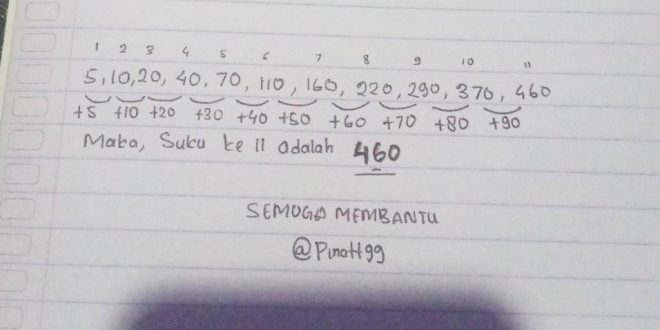 1 2 3 4 5 6 7 8 9 10 11
5, 10, 20, 40, 70, 110, 160, 220, 290, 370, 460
+5 +10 +20 +30 +40 +50 +60 +70 +80 +90
Maka, Suku ke 11 adalah 460
SEMOGA MEMBANTU
@PinaH99